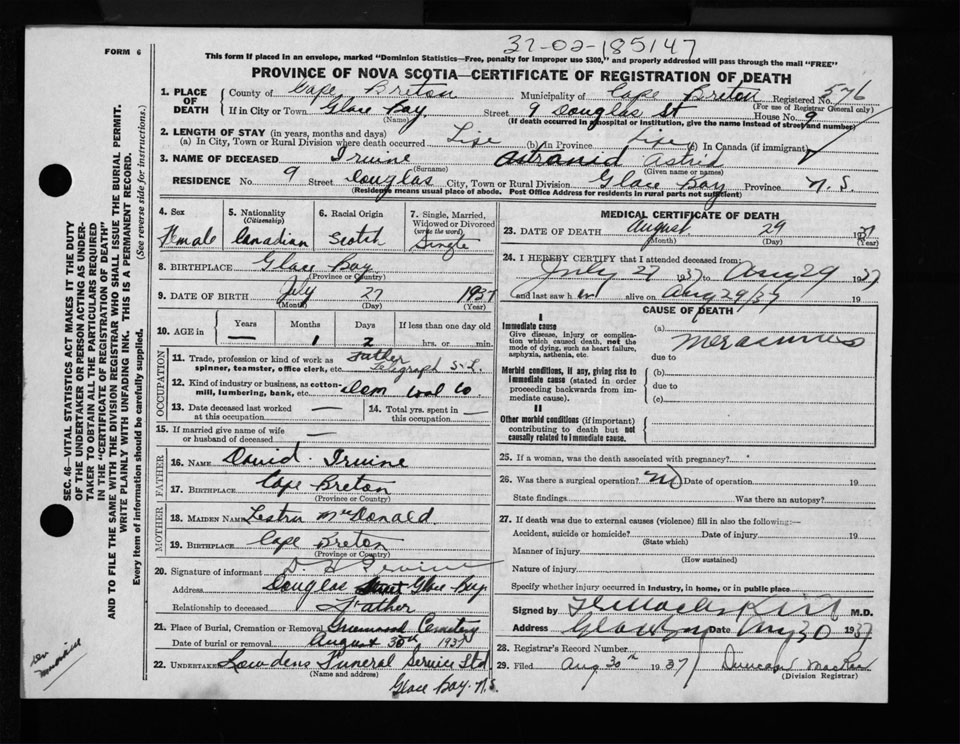 FORM 6
32-02-185147
This form if placed in an envelope, marked "Dominion Statistics—Free, penalty for improper use $300," and properly addressed will pass through the mail "FREE"
PROVINCE OF NOVA SCOTIA—CERTIFICATE OF REGISTRATION OF DEATH
1. PLACE OF DEATH County of Cape Breton Municipality of Cape Breton Registered No. 576
(For use of Registrar General only)
If in City or Town Glace Bay (Name) Street 9 Douglas St House No. 9
(If death occurred in a hospital or institution, give the name instead of street and number)
2. LENGTH OF STAY (in years, months and days)
(a) In City, Town or Rural Division where death occurred Life (b) In Province Life (c) In Canada (if immigrant)
3. NAME OF DECEASED Irvine (Surname) Astrid (Given name or names)
RESIDENCE No. 9 Street Douglas City, Town or Rural Division Glace Bay Province N.S.
(Residence means usual place of abode. Post Office Address for residents in rural parts not sufficient)
4. Sex Female
5. Nationality (Citizenship) Canadian
6. Racial Origin Scotch
7. Single, Married, Widowed or Divorced (write the word) Single
8. BIRTHPLACE Glace Bay
(Province or Country)
9. DATE OF BIRTH July 27 1937
(Month) (Day) (Year)
10. AGE in Years — Months 1 Days 2 If less than one day old hrs. or min.
OCCUPATION
11. Trade, profession or kind of work as spinner, teamster, office clerk, etc. Father Telegraph
12. Kind of industry or business, as cotton-mill, lumbering, bank, etc. Dom Coal Co
13. Date deceased last worked at this occupation —
14. Total yrs. spent in this occupation —
15. If married give name of wife or husband of deceased —
FATHER
16. NAME David Irvine
17. BIRTHPLACE Cape Breton
(Province or Country)
MOTHER
18. MAIDEN NAME McDonald
19. BIRTHPLACE Cape Breton
(Province or Country)
20. Signature of informant D. H Irvine
Address Douglas Glace Bay
Relationship to deceased Father
21. Place of Burial, Cremation or Removal Greenwood Cemetery
Date of burial or removal August 30th 1937
22. UNDERTAKER Sowdens Funeral Service Ltd
(Name and address)
Glace Bay. N.S.
MEDICAL CERTIFICATE OF DEATH
23. DATE OF DEATH August 29 1937
(Month) (Day) (Year)
24. I HEREBY CERTIFY that I attended deceased from:
July 27 1937 to Aug 29 1937
and last saw h er alive on Aug 29/37 19
CAUSE OF DEATH
I
Immediate cause
Give disease, injury or complication which caused death, not the mode of dying, such as heart failure, asphyxia, asthenia, etc.
(a)
due to
Morbid conditions, if any, giving rise to immediate cause (stated in order proceeding backwards from immediate cause).
(b)
due to
(c)
II
Other morbid conditions (if important) contributing to death but not causally related to immediate cause.
25. If a woman, was the death associated with pregnancy?
26. Was there a surgical operation? No Date of operation 19
State findings Was there an autopsy?
27. If death was due to external causes (violence) fill in also the following:—
Accident, suicide or homicide? Date of injury 19
(State which)
Manner of injury
(How sustained)
Nature of injury
Specify whether injury occurred in Industry, in home, or in public place
Signed by M.D.
Address Glace Bay Date Aug 30 1937
28. Registrar's Record Number
29. Filed Aug. 30th 1937 Duncan MacRae
(Division Registrar)
SEC. 46—VITAL STATISTICS ACT MAKES IT THE DUTY
OF THE UNDERTAKER OR PERSON ACTING AS UNDER-
TAKER TO OBTAIN ALL THE PARTICULARS REQUIRED
IN THE "CERTIFICATE OF REGISTRATION OF DEATH"
AND TO FILE THE SAME WITH THE DIVISION REGISTRAR WHO SHALL ISSUE THE BURIAL PERMIT.
WRITE PLAINLY WITH UNFADING INK. THIS IS A PERMANENT RECORD.
Every item of information should be carefully supplied. (See reverse side for instructions.)